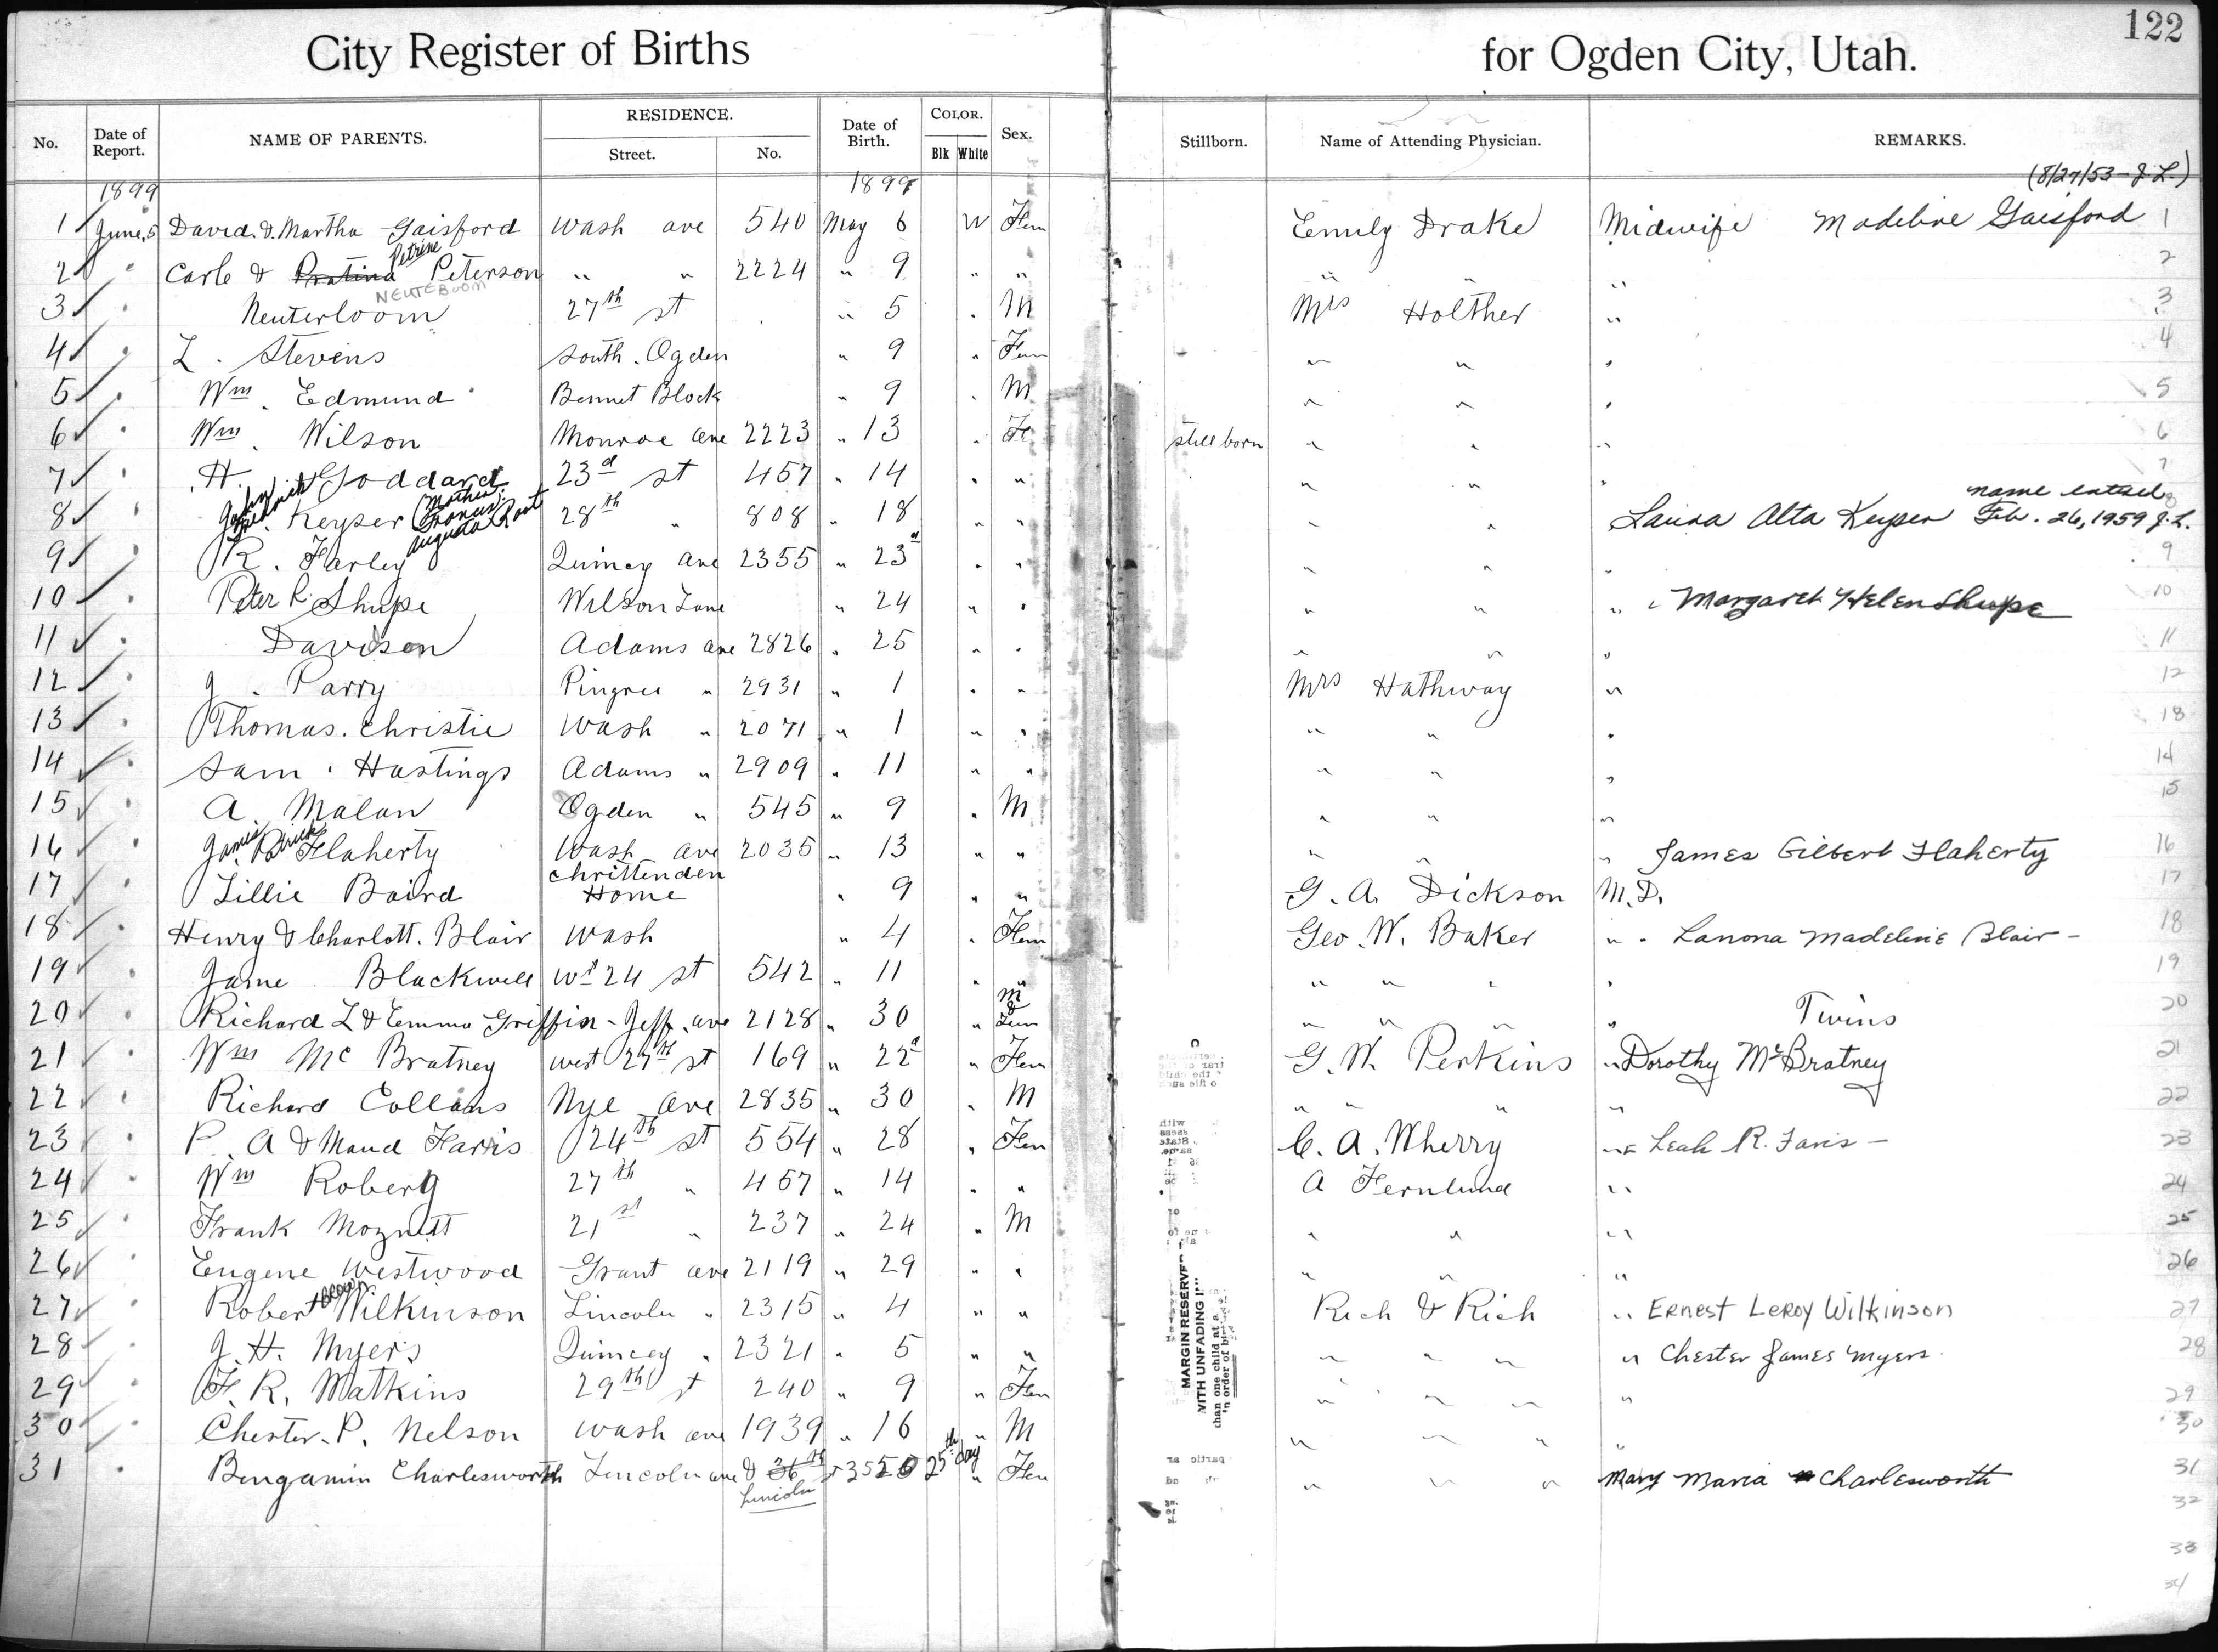 122
City Register of Births for Ogden City, Utah.
No. Date of Report. NAME OF PARENTS. RESIDENCE. Street. No. Date of Birth. COLOR. Blk White Sex. Stillborn. Name of Attending Physician. REMARKS.
1899 1899 (8/27/53 - J.L.)
1 June, 5 David. & Martha Gaisford Wash ave 540 May 6 W Fem Emily Drake Midwife Madeline Gaisford 1
2 " Carle & Pratina Petrine Peterson " " 2224 " 9 " " " " " 2
NEUTEBOOM
3 " Neuterloom 27th st " 5 " M Mrs Holther " 3
4 " L. Stevens South. Ogden " 9 " Fem " " " 4
5 " Wm. Edmund Bennet Block " 9 " M " " " 5
6 " Wm. Wilson Monroe ave 2223 " 13 " Fe stillborn " " " 6
7 " H. Goddard 23d st 457 " 14 " " " " " 7
8 " John Fredrick Keyser (Mother: Francis Augusta Root 28th " 808 " 18 " " " " Laura Alta Keyser name entered Feb. 26, 1959 J.L. 8
9 " R. Farley Quincy ave 2355 " 23d " " " " " 9
10 " Peter R. Shupe Wilson Lane " 24 " " " " " Margaret Helen Shupe 10
11 " Davison Adams ave 2826 " 25 " " " " " 11
12 " J. Parry Pingree " 2931 " 1 " " Mrs Hathway " 12
13 " Thomas. Christie Wash " 2071 " 1 " " " " " 13
14 " Sam. Hastings Adams " 2909 " 11 " " " " " 14
15 " A. Malan Ogden " 545 " 9 " M " " " 15
16 " James Patrick Flaherty Wash ave 2035 " 13 " " " " " James Gilbert Flaherty 16
17 " Lillie Baird Chrittenden Home " 9 " " G. A. Dickson M.D. 17
18 " Henry & Charlott. Blair Wash " 4 " Fem Geo. W. Baker " " Lanona Madeline Blair - 18
19 " Jame Blackwell Wst 24 st 542 " 11 " " " " " " 19
20 " Richard L & Emma Griffin - Jeff. ave 2128 " 30 " M & Fem " " " " Twins 20
21 " Wm Mc Bratney west 27th st 169 " 22d " Fem G. W. Perkins " Dorothy McBratney 21
22 " Richard Collans Nye ave 2835 " 30 " M " " " " 22
23 " P. A & Maud Farris 24th st 554 " 28 " Fem C. A. Wherry " Leah R. Faris - 23
24 " Wm Roberg 27th " 457 " 14 " " A Fernlund " 24
25 " Frank Moznett 21st " 237 " 24 " M " " " 25
26 " Eugene Westwood Grant ave 2119 " 29 " " " " " 26
27 " Robert Brown Wilkinson Lincoln " 2315 " 4 " " Rich & Rich " Ernest LeRoy Wilkinson 27
28 " J. H. Myers Quincey " 2321 " 5 " " " " " " Chester James Myers 28
29 " F. R. Matkins 29th st 240 " 9 " Fem " " " " 29
30 " Chester. P. Nelson Wash ave 1939 " 16 " M " " " " 30
31 " Bengamin Charlesworth Lincoln ave & 36th st 3550 25th day " Fem " " " Mary Maria Charlesworth 31
Lincoln
32
33
34
MARGIN RESERVE
WITH UNFADING I
than one child at a
n order of bi